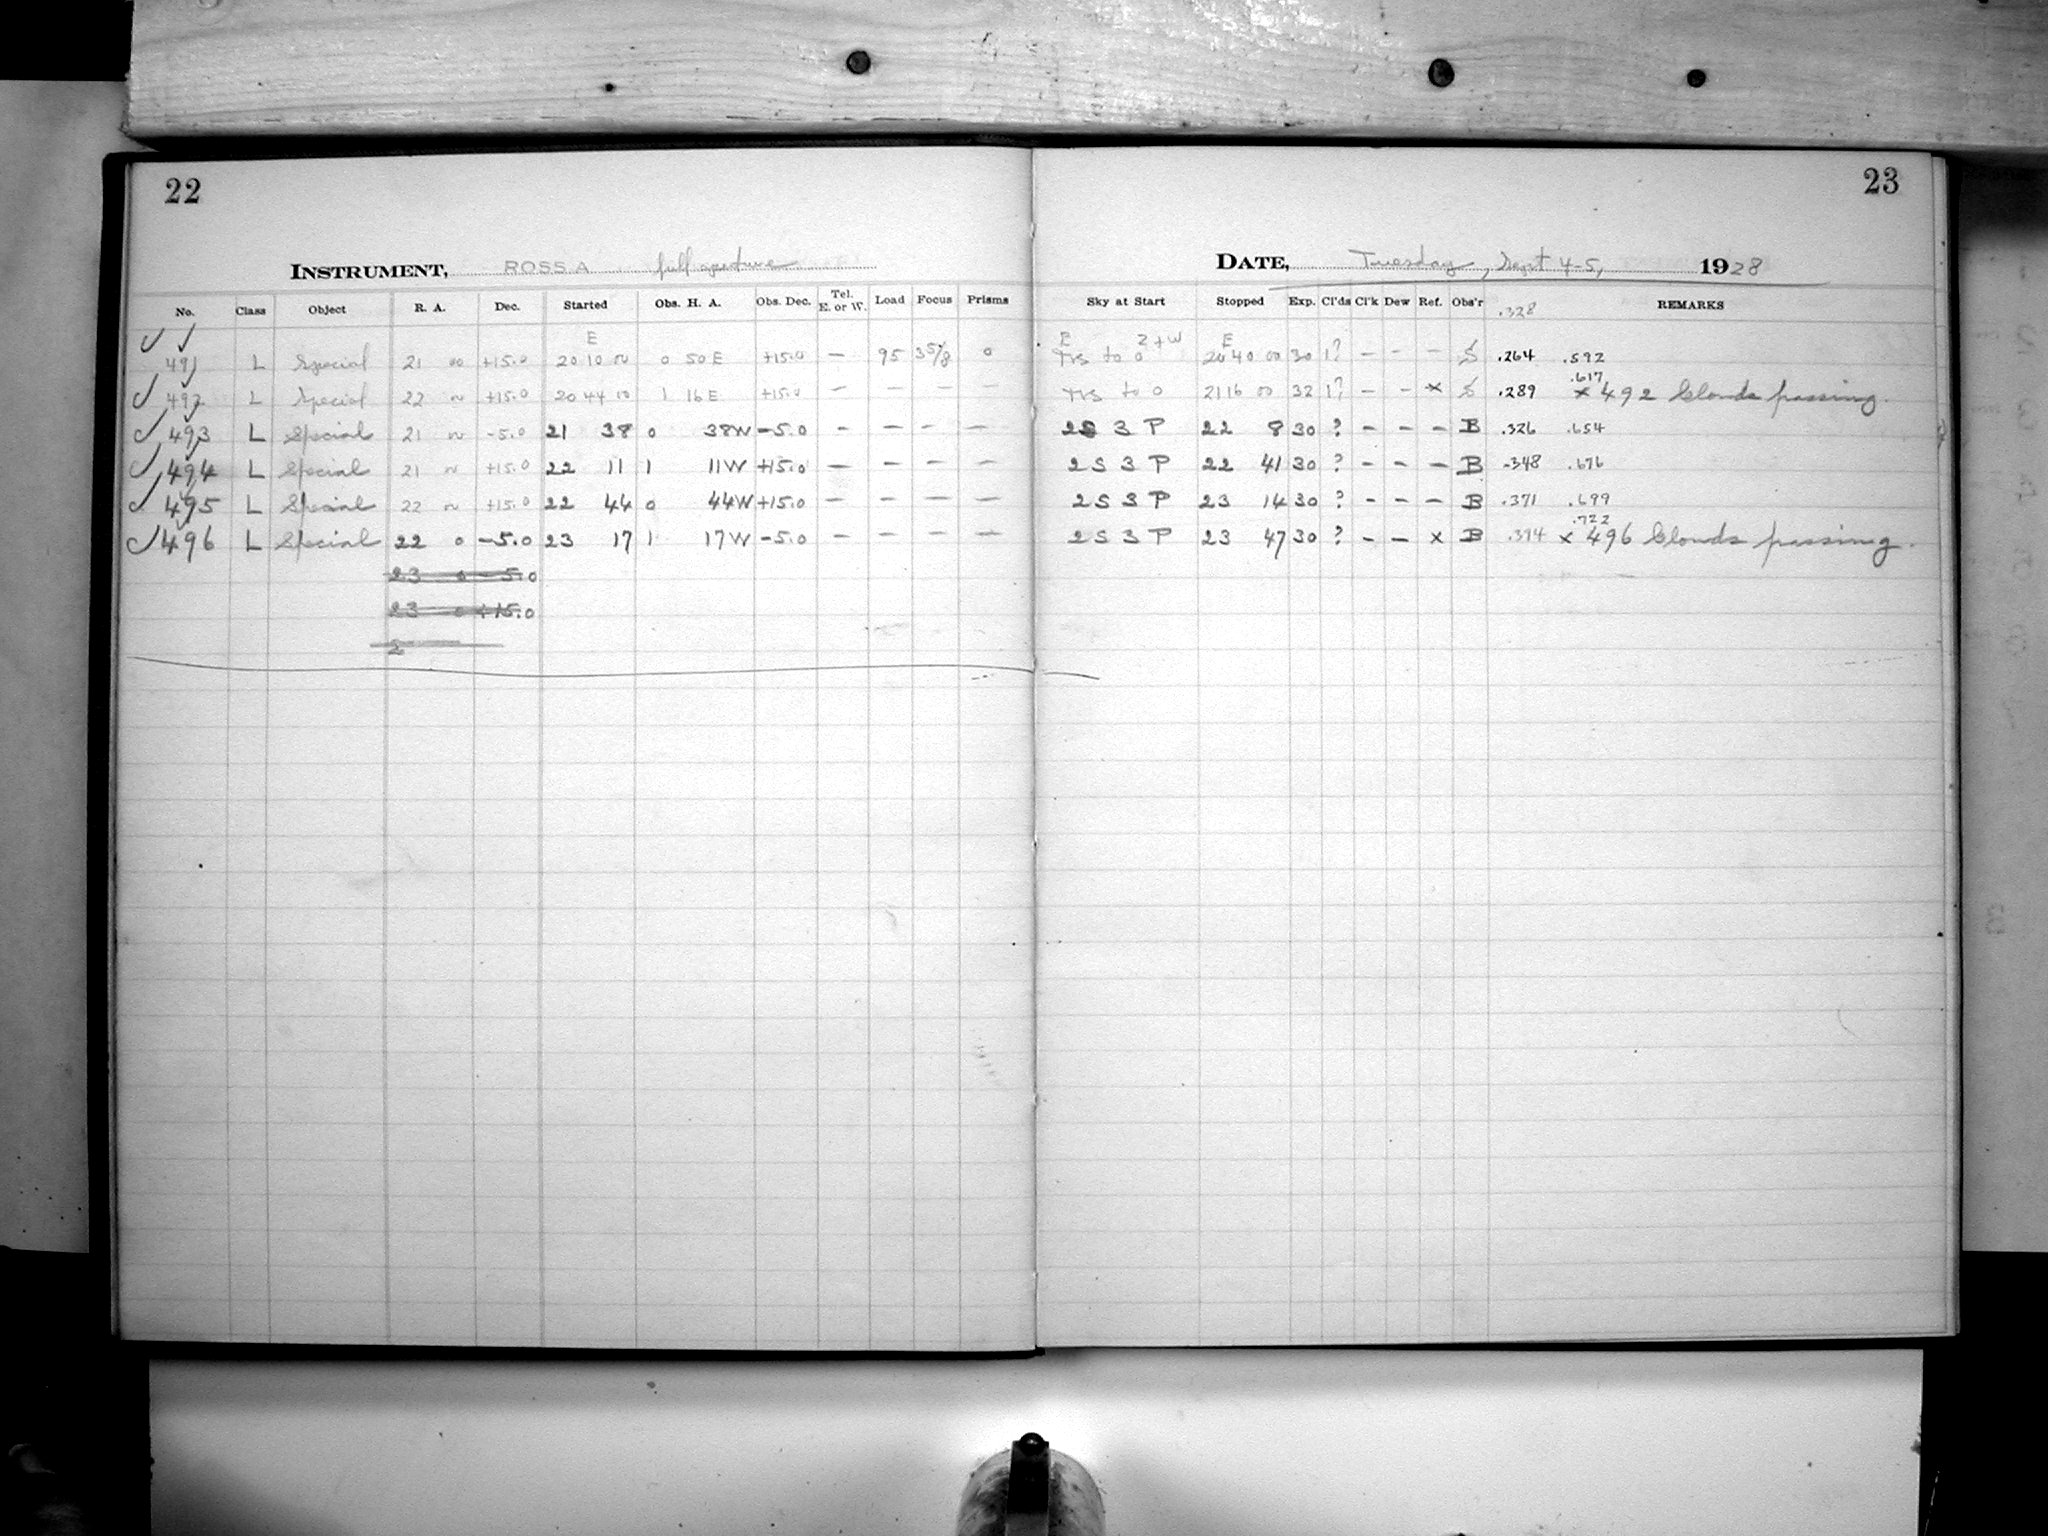 22
INSTRUMENT, ROSS A full aperture
No. Class Object R. A. Dec. Started Obs. H. A. Obs. Dec. Tel. E. or W. Load Focus Prisms
E
491 L Special 21 00 +15.0 20 10 00 0 50 E +15.0 — 95 35/8 0
492 L Special 22 00 +15.0 20 44 00 1 16 E +15.0 — — — —
493 L Special 21 00 -5.0 21 38 0 38W -5.0 — — — —
494 L Special 21 00 +15.0 22 11 1 11W +15.0 — — — —
495 L Special 22 00 +15.0 22 44 0 44W +15.0 — — — —
496 L Special 22 0 -5.0 23 17 1 17W -5.0 — — — —
23 0 -5.0
23 0 +15.0
2
23
DATE, Tuesday, Sept 4-5, 1928
Sky at Start Stopped Exp. Cl'ds Cl'k Dew Ref. Obs'r .328 REMARKS
E Z+W E
to 0 20 40 00 30 1? — — — S .264 .592
to 0 21 16 00 32 1? — — x S .289 .617 x 492 Clouds passing.
2S 3 P 22 8 30 ? — — — B .326 .654
2S 3 P 22 41 30 ? — — — B .348 .676
2S 3 P 23 14 30 ? — — — B .371 .699
2S 3 P 23 47 30 ? — — x B .394 .722 x 496 Clouds passing.